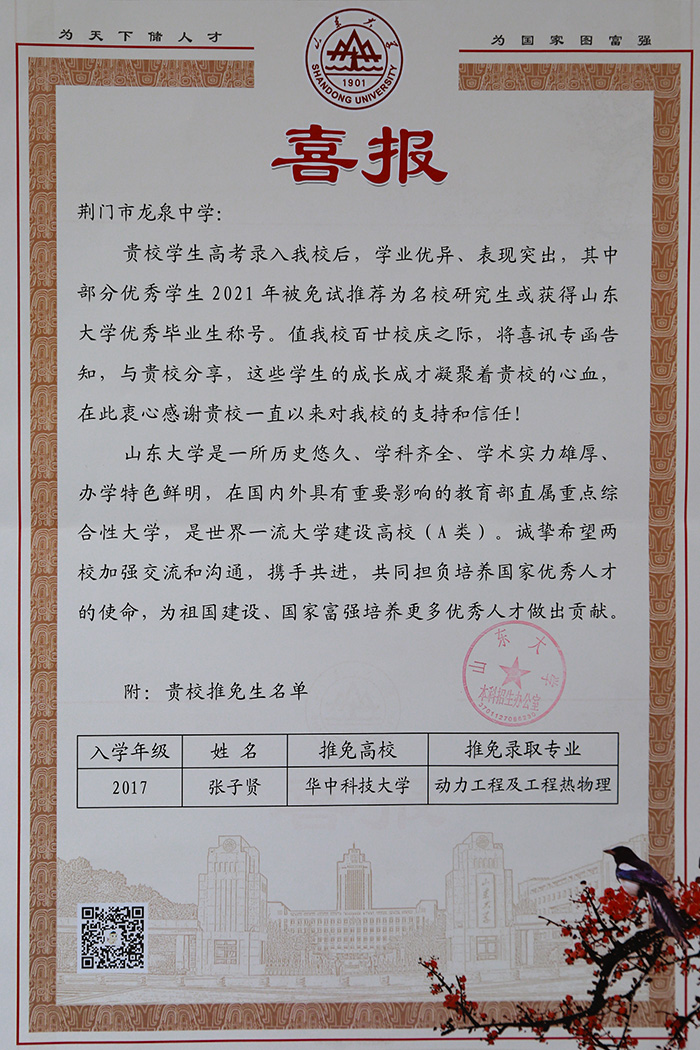 为天下储人才
为国家图富强
山东大学
SHANDONG UNIVERSITY
1901
喜报
荆门市龙泉中学：
贵校学生高考录入我校后，学业优异、表现突出，其中
部分优秀学生2021年被免试推荐为名校研究生或获得山东
大学优秀毕业生称号。值我校百廿校庆之际，将喜讯专函告
知，与贵校分享，这些学生的成长成才凝聚着贵校的心血，
在此衷心感谢贵校一直以来对我校的支持和信任！
山东大学是一所历史悠久、学科齐全、学术实力雄厚、
办学特色鲜明，在国内外具有重要影响的教育部直属重点综
合性大学，是世界一流大学建设高校（A类）。诚挚希望两
校加强交流和沟通，携手共进，共同担负培养国家优秀人才
的使命，为祖国建设、国家富强培养更多优秀人才做出贡献。
山东大学
本科招生办公室
附：贵校推免生名单
入学年级 姓名 推免高校 推免录取专业
2017 张子贤 华中科技大学 动力工程及工程热物理
山东大学